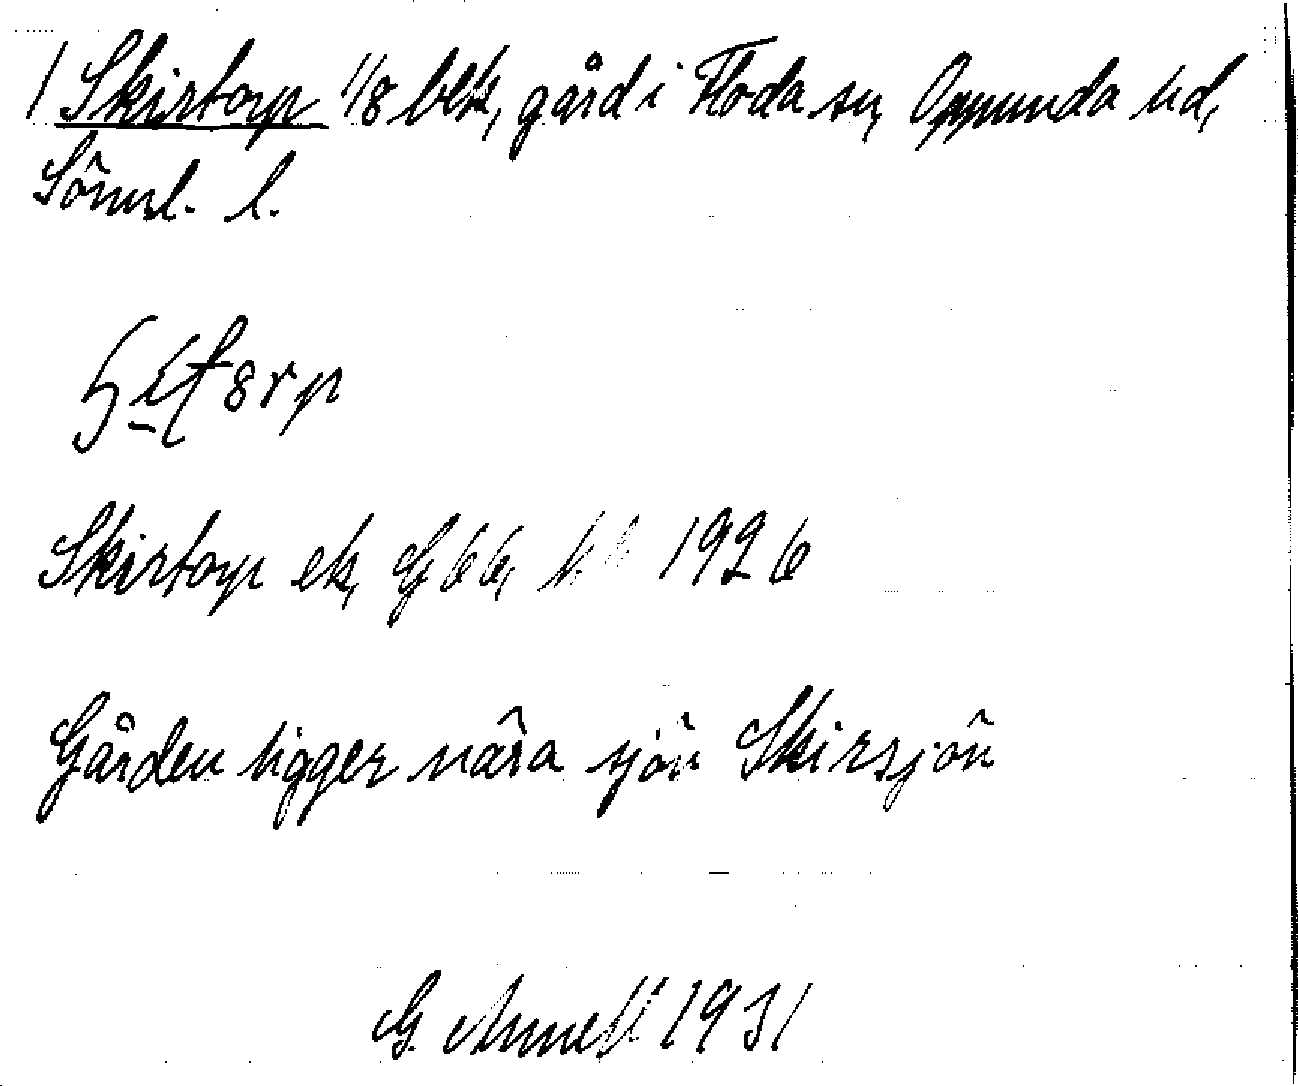 1 Skirtorp 1/8 blek, gård i Floda sn, Oppunda hd,
Sörml. l.
Skirtorp ek, G 66, 1926
Gården ligger nära sjön Skirsjön
G. Annell 1931